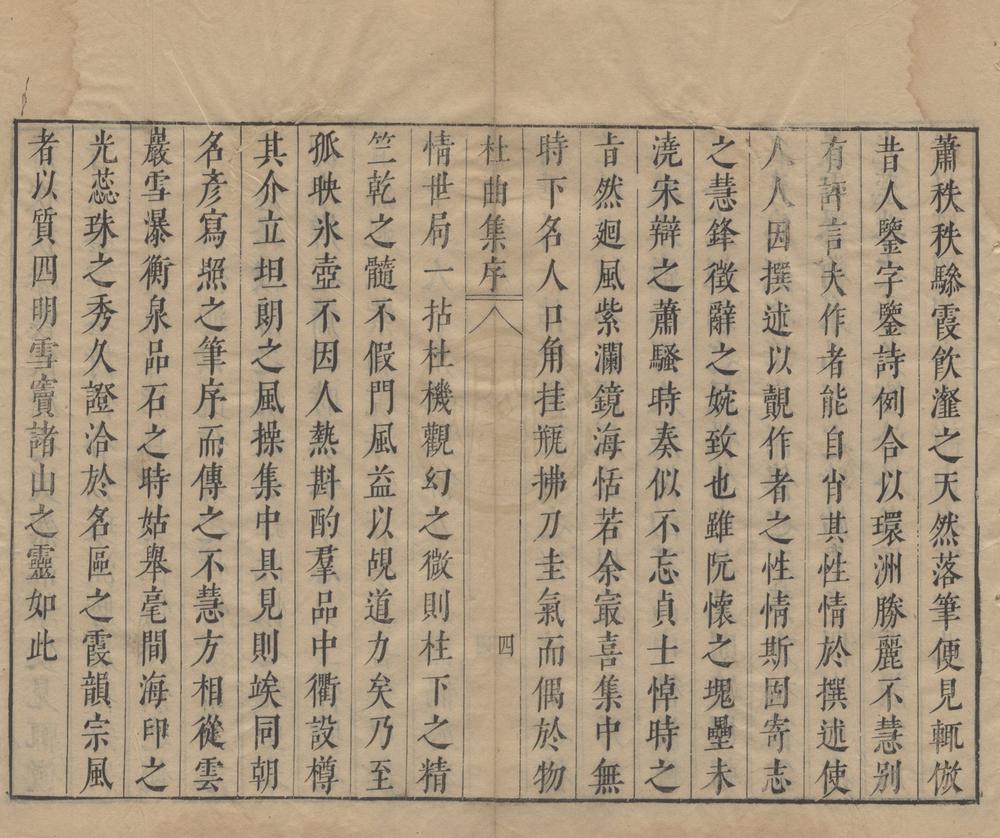 蕭秩秩驂霞飲瀣之天然落筆便見輒倣
昔人鑒字鑒詩例合以環洲勝麗不慧别
有評言夫作者能自肖其性情於撰述使
人人因撰述以覿作者之性情斯固寄志
之慧鋒徵辭之婉致也雖阮懷之塊壘未
澆宋辯之蕭騷時奏似不忘貞士悼時之
旨然廻風紫瀾鏡海恬若余㝡喜集中無
時下名人口角挂瓶拂刀圭氣而偶於物
杜曲集序
四
情世局一拈杜機觀幻之微則柱下之精
竺乾之髓不假門風益以覘道力矣乃至
孤映氷壺不因人熱斟酌羣品中衢設樽
其介立坦朗之風操集中具見則竢同朝
名彥寫照之筆序而傳之不慧方相從雲
巖雪瀑衡泉品石之時姑舉毫間海印之
光蕊珠之秀久證洽於名區之霞韻宗風
者以質四明雪竇諸山之靈如此